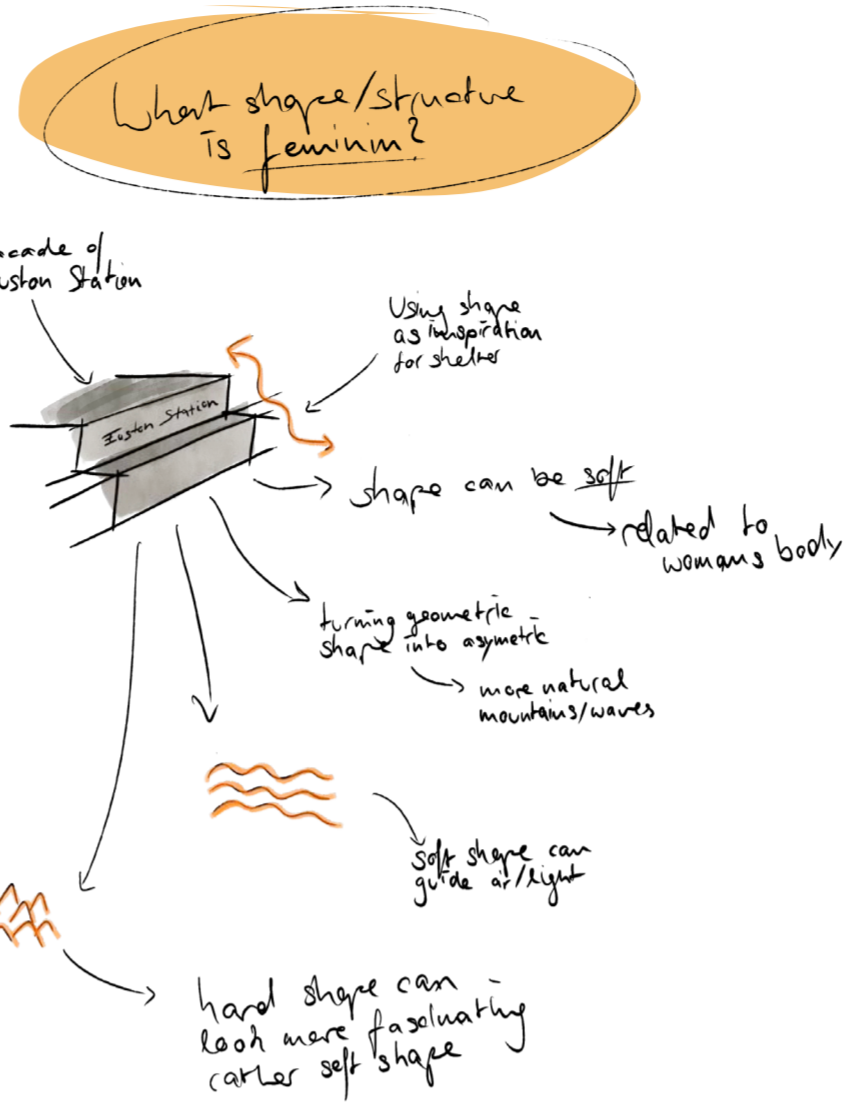 What shape/structure
is feminim?
acade of
uston Station
Using shape
as inspiration
for shelter
Euston Station
shape can be soft
related to
womans body
turning geometric
shape into asymetric
more natural
mountains/waves
soft shape can
guide air/light
hard shape can
look more fascinating
rather soft shape